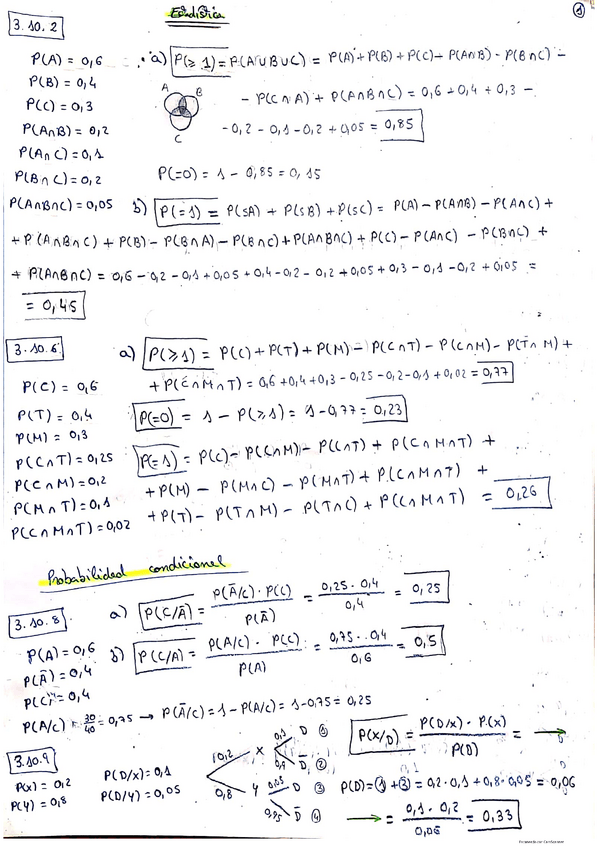 Estadística
1
3.10.2
P(A) = 0,6
P(B) = 0,4
P(C) = 0,3
P(A∩B) = 0,2
P(A∩C) = 0,1
P(B∩C) = 0,2
P(A∩B∩C) = 0,05
a) P(≥ 1) = P(A∪B∪C) = P(A) + P(B) + P(C) + P(A∩B) - P(B∩C) -
A B C
- P(C∩A) + P(A∩B∩C) = 0,6 + 0,4 + 0,3 -
- 0,2 - 0,1 - 0,2 + 0,05 = 0,85
P(=0) = 1 - 0,85 = 0,15
b) P(=1) = P(sA) + P(sB) + P(sC) = P(A) - P(A∩B) - P(A∩C) +
+ P(A∩B∩C) + P(B) - P(B∩A) - P(B∩C) + P(A∩B∩C) + P(C) - P(A∩C) - P(B∩C) +
+ P(A∩B∩C) = 0,6 - 0,2 - 0,1 + 0,05 + 0,4 - 0,2 - 0,2 + 0,05 + 0,3 - 0,1 - 0,2 + 0,05 =
= 0,45
3.10.6
P(C) = 0,6
P(T) = 0,4
P(M) = 0,3
P(C∩T) = 0,25
P(C∩M) = 0,2
P(M∩T) = 0,1
P(C∩M∩T) = 0,02
a) P(≥1) = P(C) + P(T) + P(M) - P(C∩T) - P(C∩M) - P(T∩M) +
+ P(C∩M∩T) = 0,6 + 0,4 + 0,3 - 0,25 - 0,2 - 0,1 + 0,02 = 0,77
P(=0) = 1 - P(≥1) = 1 - 0,77 = 0,23
P(=1) = P(C) - P(C∩M) - P(C∩T) + P(C∩M∩T) +
+ P(M) - P(M∩C) - P(M∩T) + P(C∩M∩T) +
+ P(T) - P(T∩M) - P(T∩C) + P(C∩M∩T) = 0,26
Probabilidad condicional
3.10.8
P(A) = 0,6
P(Ā) = 0,4
P(C) = 0,4
P(A/C) = 30/40 = 0,75 → P(Ā/C) = 1 - P(A/C) = 1 - 0,75 = 0,25
a) P(C/Ā) = P(Ā/C) · P(C) / P(Ā) = 0,25 · 0,4 / 0,4 = 0,25
b) P(C/A) = P(A/C) · P(C) / P(A) = 0,75 · 0,4 / 0,6 = 0,5
3.10.9
P(X) = 0,2
P(Y) = 0,8
P(D/X) = 0,1
P(D/Y) = 0,05
0,2 X 0,1 D 1
0,9 D̄ 2
0,8 Y 0,05 D 3
0,95 D̄ 4
P(X/D) = P(D/X) · P(X) / P(D) = →
P(D) = 1 + 3 = 0,2 · 0,1 + 0,8 · 0,05 = 0,06
→ = 0,1 · 0,2 / 0,06 = 0,33